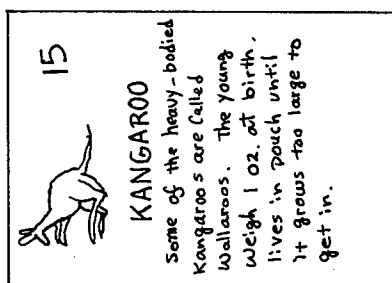 15
KANGAROO
Some of the heavy-bodied
Kangaroos are Called
Wallaroos. The young
weigh 1 oz. at birth.
lives in pouch until
it grows too large to
get in.